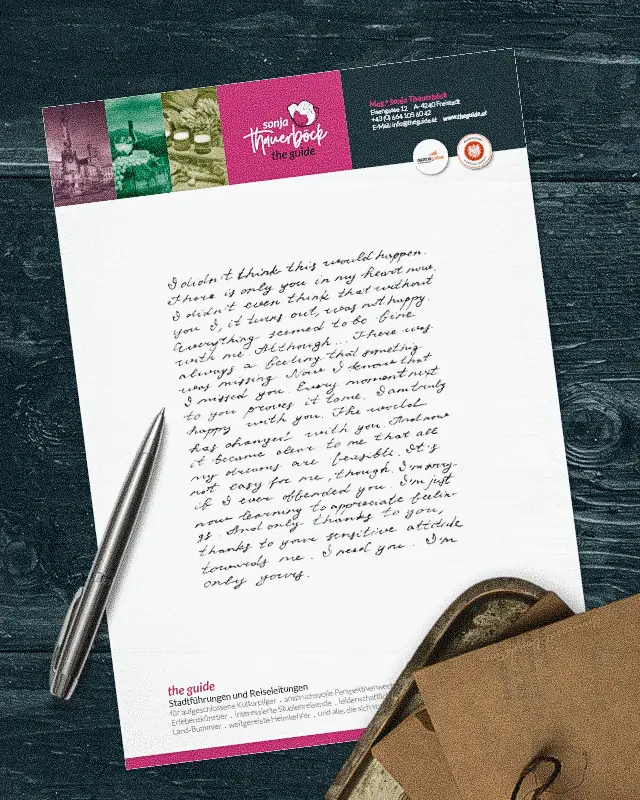 sonja
thauerböck
the guide
Mag.ª Sonja Thauerböck
Eisengasse 12 A- 4240 Freistadt
+43 (0) 664 105 60 42
E-Mail: info@theguide.at www.theguide.at
I didn't think this would happen.
There is only you in my heart now.
I didn't even think that without
you I, it turns out, was not happy.
Everything seemed to be fine
with me. Although... There was
always a feeling that somethig
was missing. Now I know that
I missed you. Every moment next
to you proves it to me. I am truly
happy with you. The world
has changed with you. And now
it became clear to me that all
my dreams are feasible. It's
not easy for me, though. I'm sorry
if I ever offended you. I'm just
now learning to appreciate feelin-
gs. And only thanks to you,
thanks to your sensitive attitude
towards me. I need you. I'm
only yours.
the guide
Stadtführungen und Reiseleitungen
für aufgeschlossene Kulturpilger . anspruchsvolle Perspektivenwe
Erlebenskünstler . interessierte Studienreisende . leidenschaftli
Land-Bummler . weitgereiste Heimkehrer . und alle, die sich vo